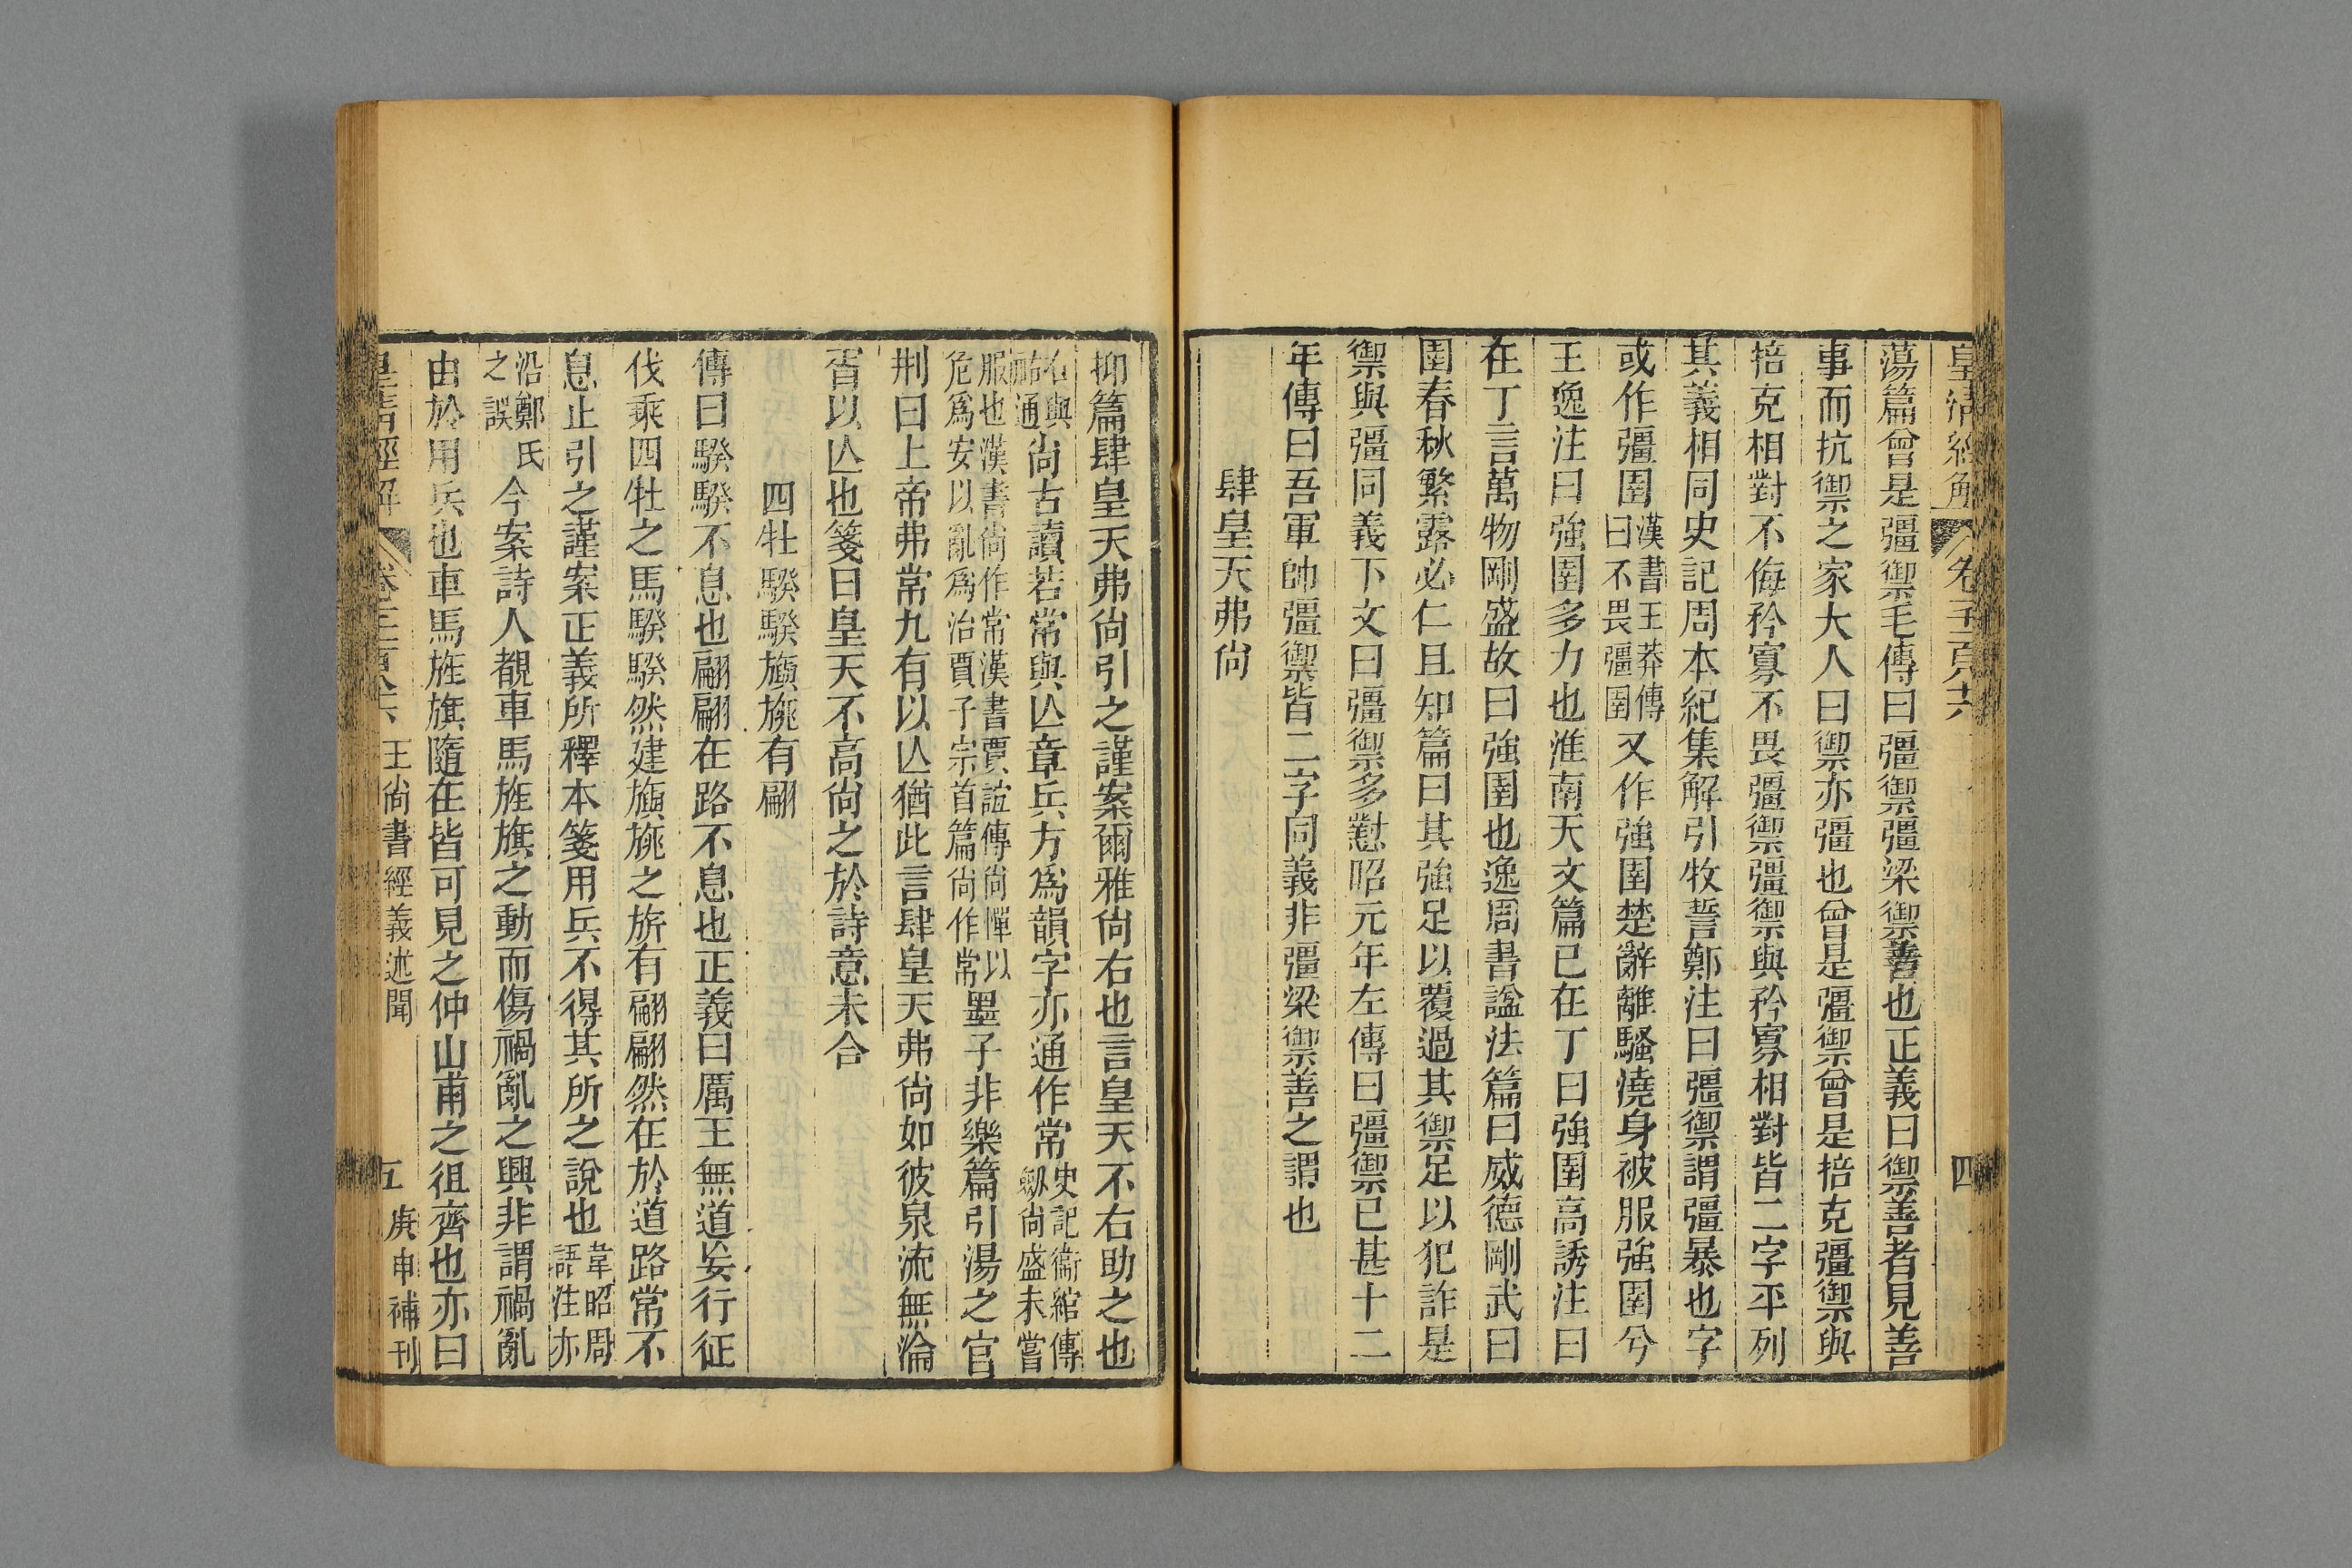 皇清經解 卷千一百八十六 四
蕩篇曾是彊禦毛傳曰彊禦彊梁禦善也正義曰禦善者見善
事而抗禦之家大人曰禦亦彊也曾是彊禦曾是掊克彊禦與
掊克相對不侮矜寡不畏彊禦彊禦與矜寡相對皆二字平列
其義相同史記周本紀集解引牧誓鄭注曰彊禦謂彊暴也字
或作彊圉漢書王莽傳曰不畏彊圉又作強圉楚辭離騷澆身被服強圉兮
王逸注曰強圉多力也淮南天文篇已在丁曰強圉高誘注曰
在丁言萬物剛盛故曰強圉也逸周書諡法篇曰威德剛武曰
圉春秋繁露必仁且知篇曰其強足以覆過其禦足以犯詐是
禦與彊同義下文曰彊禦多懟昭元年左傳曰彊禦已甚十二
年傳曰吾軍帥彊禦皆二字同義非彊梁禦善之謂也
肆皇天弗尚
抑篇肆皇天弗尚引之謹案爾雅尚右也言皇天不右助之也
右與祐通尚古讀若常與亾章兵方爲韻字亦通作常史記衞綰傳劒尚盛未嘗
服也漢書尚作常漢書賈誼傳尚憚以危爲安以亂爲治賈子宗首篇尚作常墨子非樂篇引湯之官
刑曰上帝弗常九有以亾猶此言肆皇天弗尚如彼泉流無淪
胥以亾也箋曰皇天不高尚之於詩意未合
四牡騤騤旟旐有翩
傳曰騤騤不息也翩翩在路不息也正義曰厲王無道妄行征
伐乘四牡之馬騤騤然建旟旐之旂有翩翩然在於道路常不
息止引之謹案正義所釋本箋用兵不得其所之說也韋昭周語注亦
沿鄭氏之誤今案詩人覩車馬旌旗之動而傷禍亂之興非謂禍亂
由於用兵也車馬旌旗隨在皆可見之仲山甫之徂齊也亦曰
皇清經解 卷千一百八十六 王尚書經義述聞 五 庚申補刊